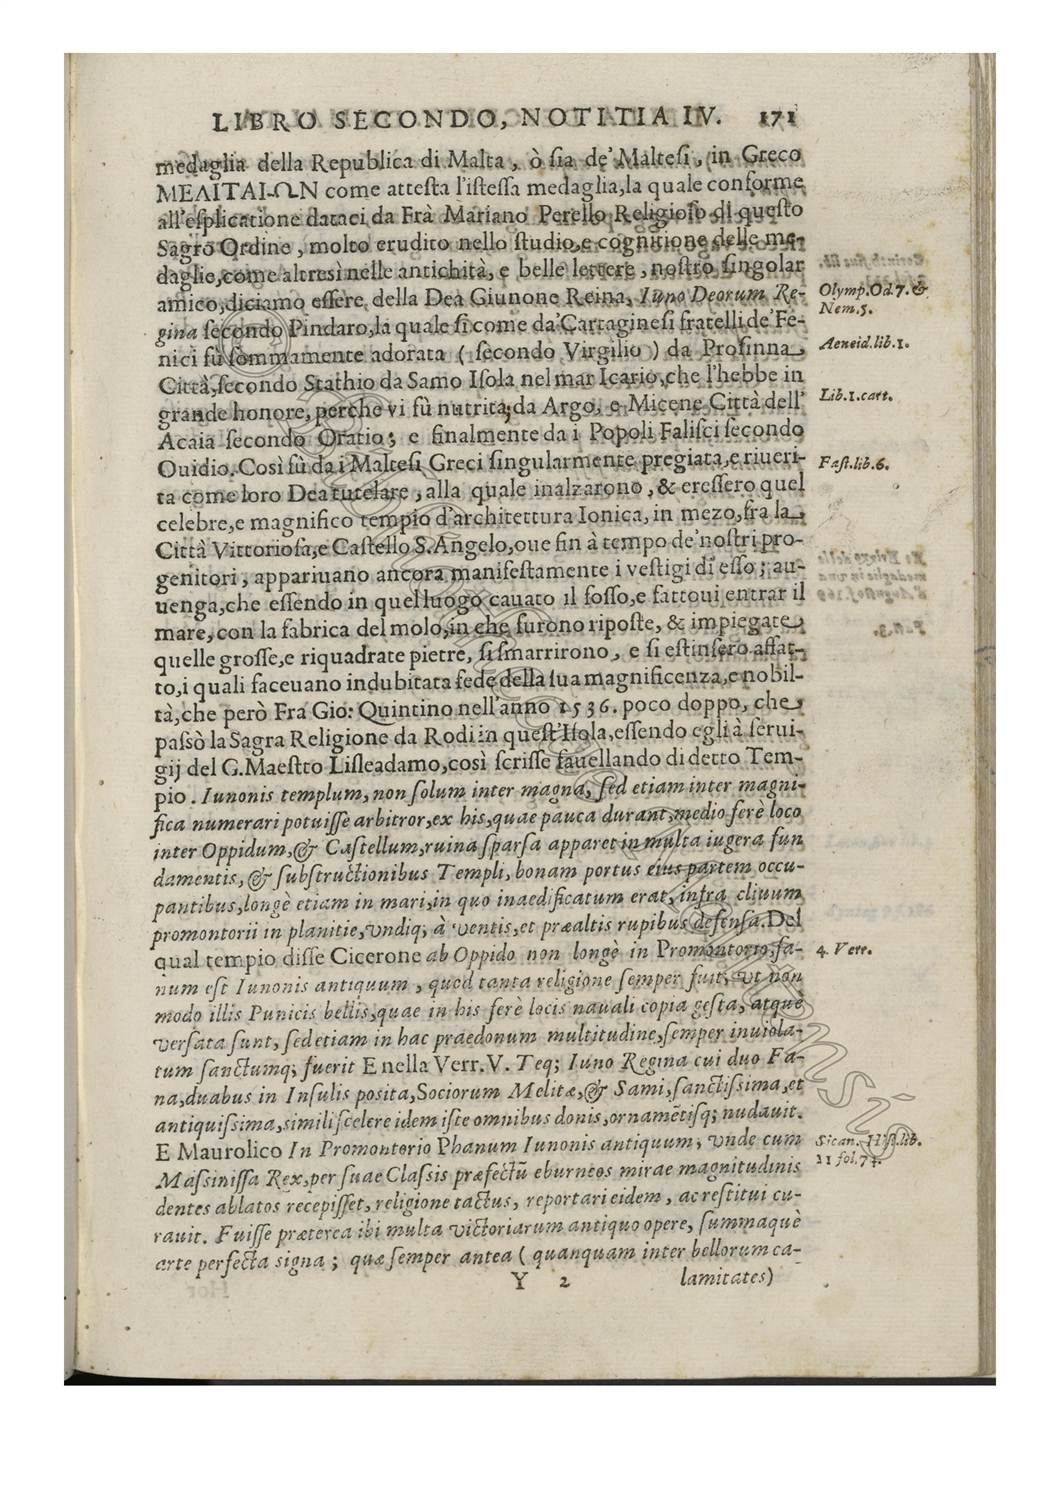 LIBRO SECONDO, NOTITIA IV. 171
medaglia della Republica di Malta, ò sia de' Maltesi, in Greco
ΜΕΛΙΤΑΙ-ΩΝ come attesta l'istessa medaglia, la quale conforme
all'esplicatione dataci da Frà Mariano Perello Religioso di questo
Sagro Ordine, molto erudito nello studio, e cognitione delle me-
daglie, come altresì nelle antichità, e belle lettere, nostro singolar
amico, diciamo essere della Dea Giunone Reina, Iuno Deorum Re-
Olymp. Od. 7. &
Nem. 5.
gina secondo Pindaro, la quale sì come da' Cartaginesi fratelli de' Fe-
nici fù sommamente adorata ( secondo Virgilio ) da Prosinna
Aeneid. lib. 1.
Città, secondo Stathio da Samo Isola nel mar Icario, che l'hebbe in
grande honore, perche vi fù nutrita; da Argo, e Micene Città dell'
Lib. 1. carr.
Acaia secondo Oratio; e finalmente da i Popoli Falisci secondo
Ouidio. Così fù da i Maltesi Greci singularmente pregiata, e riueri-
Fast. lib. 6.
ta come loro Dea tutelare, alla quale inalzarono, & eressero quel
celebre, e magnifico tempio d'architettura Ionica, in mezo, fra la
Città Vittoriosa, e Castello S. Angelo, oue fin à tempo de' nostri pro-
genitori, appariuano ancora manifestamente i vestigi di esso; au-
uenga, che essendo in quel luogo cauato il fosso, e fattoui entrar il
mare, con la fabrica del molo, in che furono riposte, & impiegate
quelle grosse, e riquadrate pietre, si smarrirono, e si estinsero affat-
to, i quali faceuano indubitata fede della sua magnificenza, e nobil-
tà, che però Fra Gio: Quintino nell'anno 1536. poco doppo, che
passò la Sagra Religione da Rodi in quest'Isola, essendo egli à serui-
gij del G. Maestto Lisleadamo, così scrisse fauellando di detto Tem-
pio. Iunonis templum, non solum inter magna, sed etiam inter magni-
fica numerari potuisse arbitror, ex his, quae pauca durant, medio ferè loco
inter Oppidum, & Castellum, ruina sparsa apparet in multa iugera fun
damentis, & substructionibus Templi, bonam portus eius partem occu-
pantibus, longè etiam in mari, in quo inaedificatum erat, infra cliuum
promontorii in planitie, vndiq; à ventis, et præaltis rupibus defensa. Del
qual tempio disse Cicerone ab Oppido non longè in Promontorio, fa-
4. Verr.
num est Iunonis antiquum, quod tanta religione semper fuit, vt non
modo illis Punicis bellis, quae in his ferè locis nauali copia gesta, atquè
versata sunt, sed etiam in hac praedonum multitudine, semper inuiola-
tum sanctumq; fuerit E nella Verr. V. Teq; Iuno Regina cui duo Fa-
na, duabus in Insulis posita, Sociorum Melitæ, & Sami, sanctissima, et
antiquissima, simili scelere idem iste omnibus donis, ornamētisq; nudauit.
E Maurolico In Promontorio Phanum Iunonis antiquum, vnde cum
Sican. Hist. lib.
11 fol. 74.
Massinissa Rex, per suae Classis præfectū eburneos mirae magnitudinis
dentes ablatos recepisset, religione tactus, reportari eidem, ac restitui cu-
rauit. Fuisse præterea ibi multa victoriarum antiquo opere, summaquè
arte perfecta signa; quæ semper antea ( quanquam inter bellorum ca-
Y 2 lamitates)